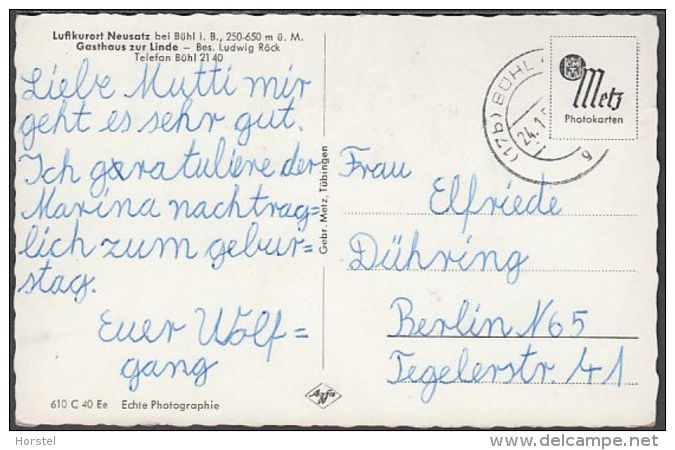 Luftkurort Neusatz bei Bühl i. B., 250-650 m ü. M.
Gasthaus zur Linde – Bes. Ludwig Röck
Telefon Bühl 21 40
Liebe Mutti mir
geht es sehr gut.
Ich gxratuliere der
Marina nachträg=
lich zum gebur=
stag.
Euer Wolf=
gang
610 C 40 Ee Echte Photographie
Agfa
Gebr. Metz, Tübingen
(17b) BÜHL
24.1
g
Metz
Photokarten
Frau Elfriede
Dühring
Berlin N65
Tegelerstr. 41
Horstel
www.delcampe.net